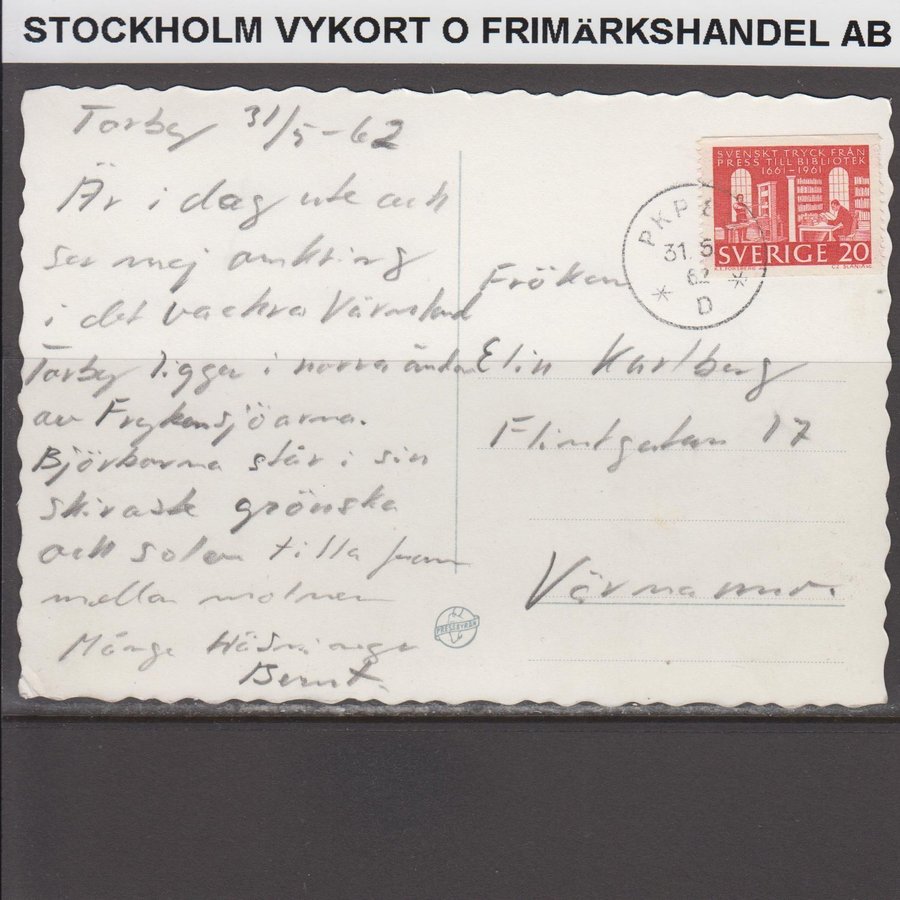 STOCKHOLM VYKORT O FRIMÄRKSHANDEL AB
Torby 31/5-62
Är i dag ute och
ser mej omkring
i det vackra Värmland
Torby ligger i norra ändan
av Frykensjöarna.
Björkarna står i sin
skiraste grönska
och solen tittar fram
mellan molnen
Många Hälsningar
Bernt.
PRESSBYRÅN
SVENSKT TRYCK FRÅN
PRESS TILL BIBLIOTEK
1661-1961
SVERIGE 20
PKP
31. 5
62
D
Fröken
Elin Karlberg
Flintgatan 17
Värnamo.